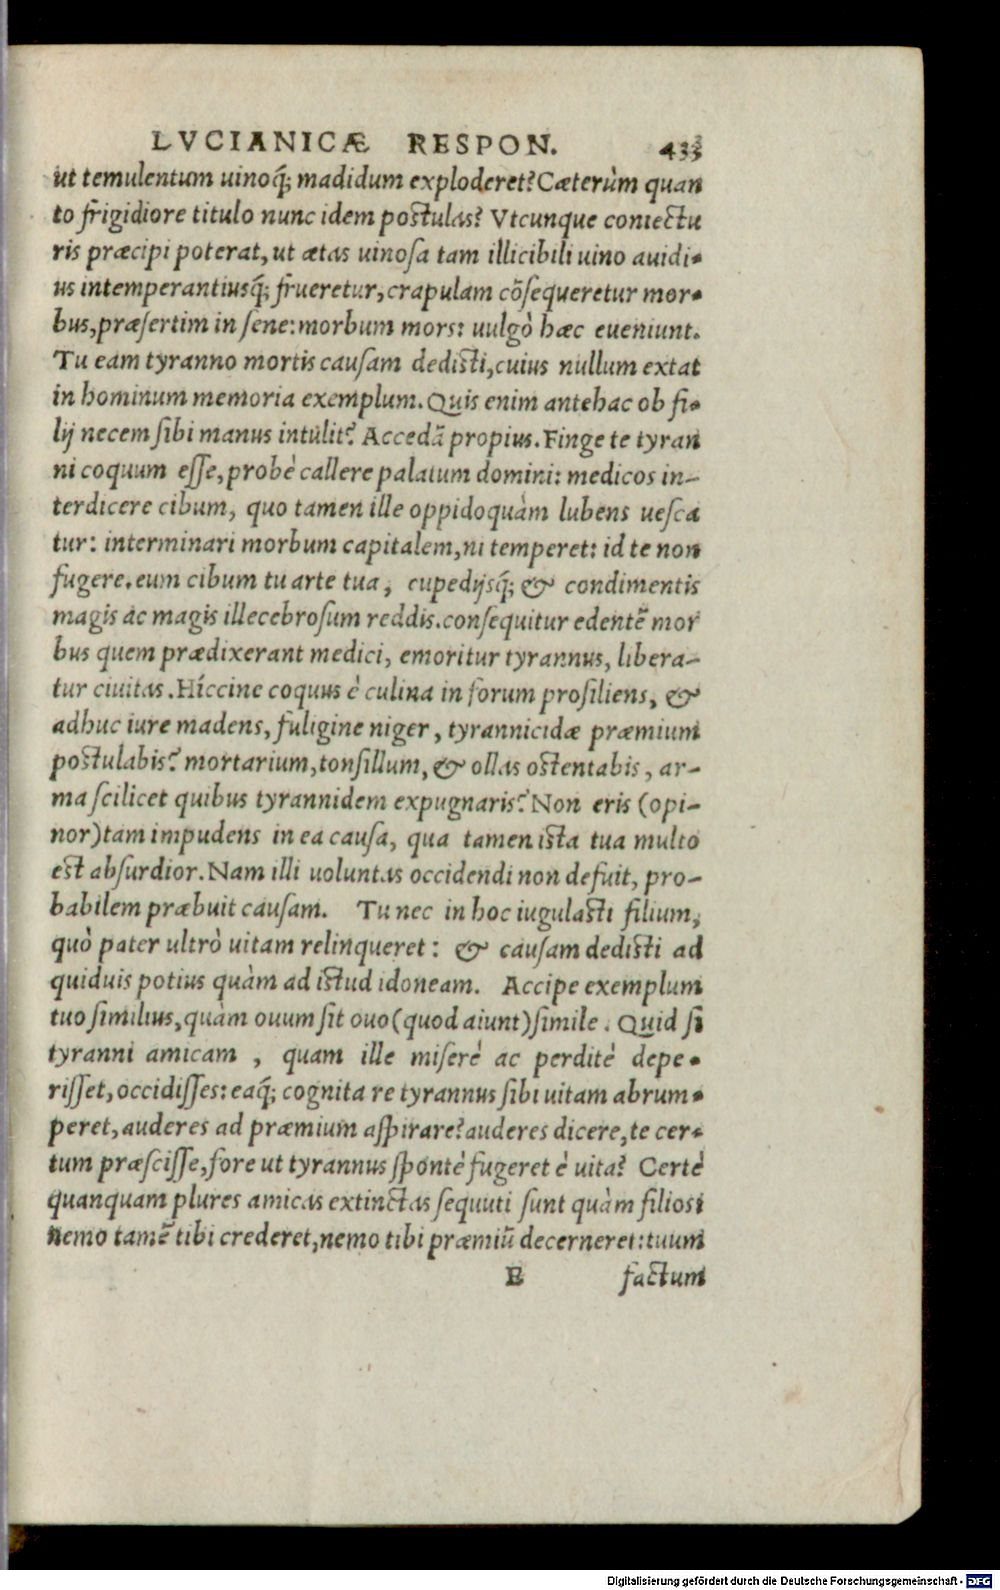 LVCIANICÆ RESPON. 433
ut temulentum uinoq́; madidum exploderet? Cæterùm quan
to frigidiore titulo nunc idem postulas? Vtcunque coniectu
ris præcipi poterat, ut ætas uinosa tam illicibili uino auidi-
us intemperantiusq́; frueretur, crapulam cõsequeretur mor-
bus, præsertim in sene: morbum mors: uulgò hæc eueniunt.
Tu eam tyranno mortis causam dedisti, cuius nullum extat
in hominum memoria exemplum. Quis enim antehac ob fi-
lij necem sibi manus intulit? Accedã propius. Finge te tyran
ni coquum esse, probè callere palatum domini: medicos in-
terdicere cibum, quo tamen ille oppidoquàm lubens uesca
tur: interminari morbum capitalem, ni temperet: id te non
fugere. eum cibum tu arte tua, cupedijsq́; & condimentis
magis ac magis illecebrosum reddis. consequitur edentẽ mor
bus quem prædixerant medici, emoritur tyrannus, libera-
tur ciuitas. Híccine coquus è culina in forum prosiliens, &
adhuc iure madens, fuligine niger, tyrannicidæ præmium
postulabis? mortarium, tonsillum, & ollas ostentabis, ar-
ma scilicet quibus tyrannidem expugnaris? Non eris (opi-
nor) tam impudens in ea causa, qua tamen ista tua multo
est absurdior. Nam illi uoluntas occidendi non defuit, pro-
babilem præbuit causam. Tu nec in hoc iugulasti filium,
quò pater ultrò uitam relinqueret: & causam dedisti ad
quiduis potius quàm ad istud idoneam. Accipe exemplum
tuo similius, quàm ouum sit ouo (quod aiunt) simile. Quid si
tyranni amicam, quam ille miserè ac perditè depe-
risset, occidisses: eaq́; cognita re tyrannus sibi uitam abrum-
peret, auderes ad præmium aspirare? auderes dicere, te cer-
tum præscisse, fore ut tyrannus spontè fugeret è uita? Certè
quanquam plures amicas extinctas sequuti sunt quàm filios:
nemo tamẽ tibi crederet, nemo tibi præmiũ decerneret: tuum
E factum
Digitalisierung gefördert durch die Deutsche Forschungsgemeinschaft - DFG